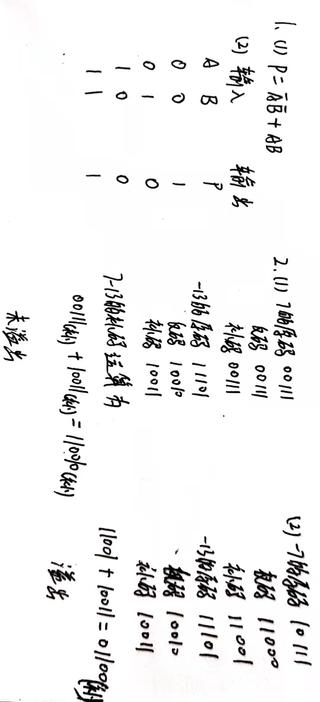 1. (1) P = A̅B̅ + AB
(2) 输入 输出
A B P
0 0 1
0 1 0
1 0 0
1 1 1
2. (1) 7的原码 00111
反码 00111
补码 00111
-13的原码 11101
反码 10010
补码 10011
7-13的补码运算为
00111(补) + 10011(补) = 11010(补)
未溢出
(2) -7的原码 10111
反码 11000
补码 11001
-13的原码 11101
反码 10010
补码 10011
11001 + 10011 = 01100(补)
溢出